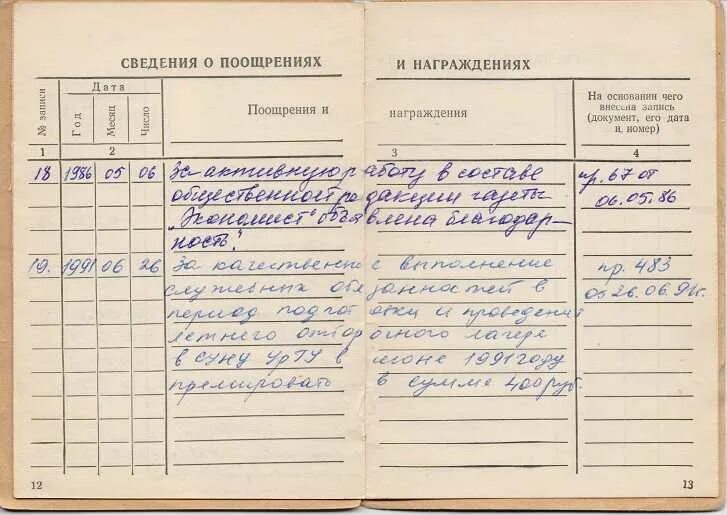 СВЕДЕНИЯ О ПООЩРЕНИЯХ И НАГРАЖДЕНИЯХ
№ записи
Дата
Год
Месяц
Число
Поощрения и награждения
На основании чего
внесена запись
(документ, его дата
и номер)
1 2 3 4
18 1986 05 06 За активную работу в составе пр. 67 от
общественной редакции газеты 06.05.86
„Экономист" объявлена благодар-
ность."
19. 1991 06 26 За качественное выполнение пр. 483
служебных обязанностей в от 26.06.91г.
период подготовки и проведения
летнего лагеря
в УрГУ в июне 1991 году
премировать в сумме 400 руб.
12
13